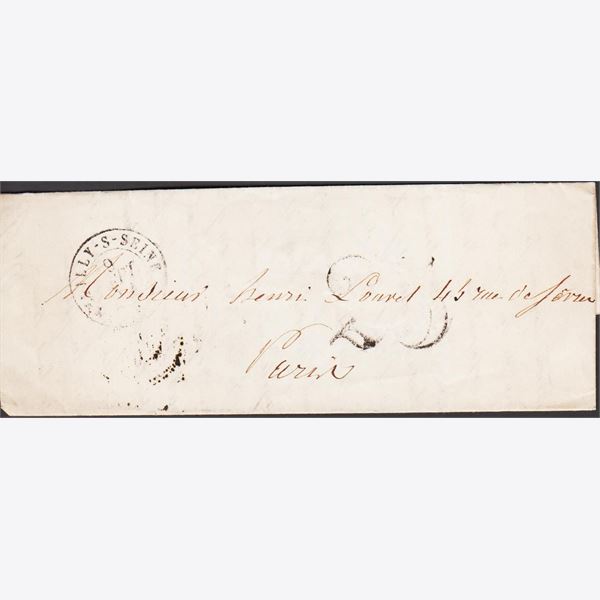 LLY-S-SEINE
Monsieur henri Louvet 45 rue de Sèvres
Paris